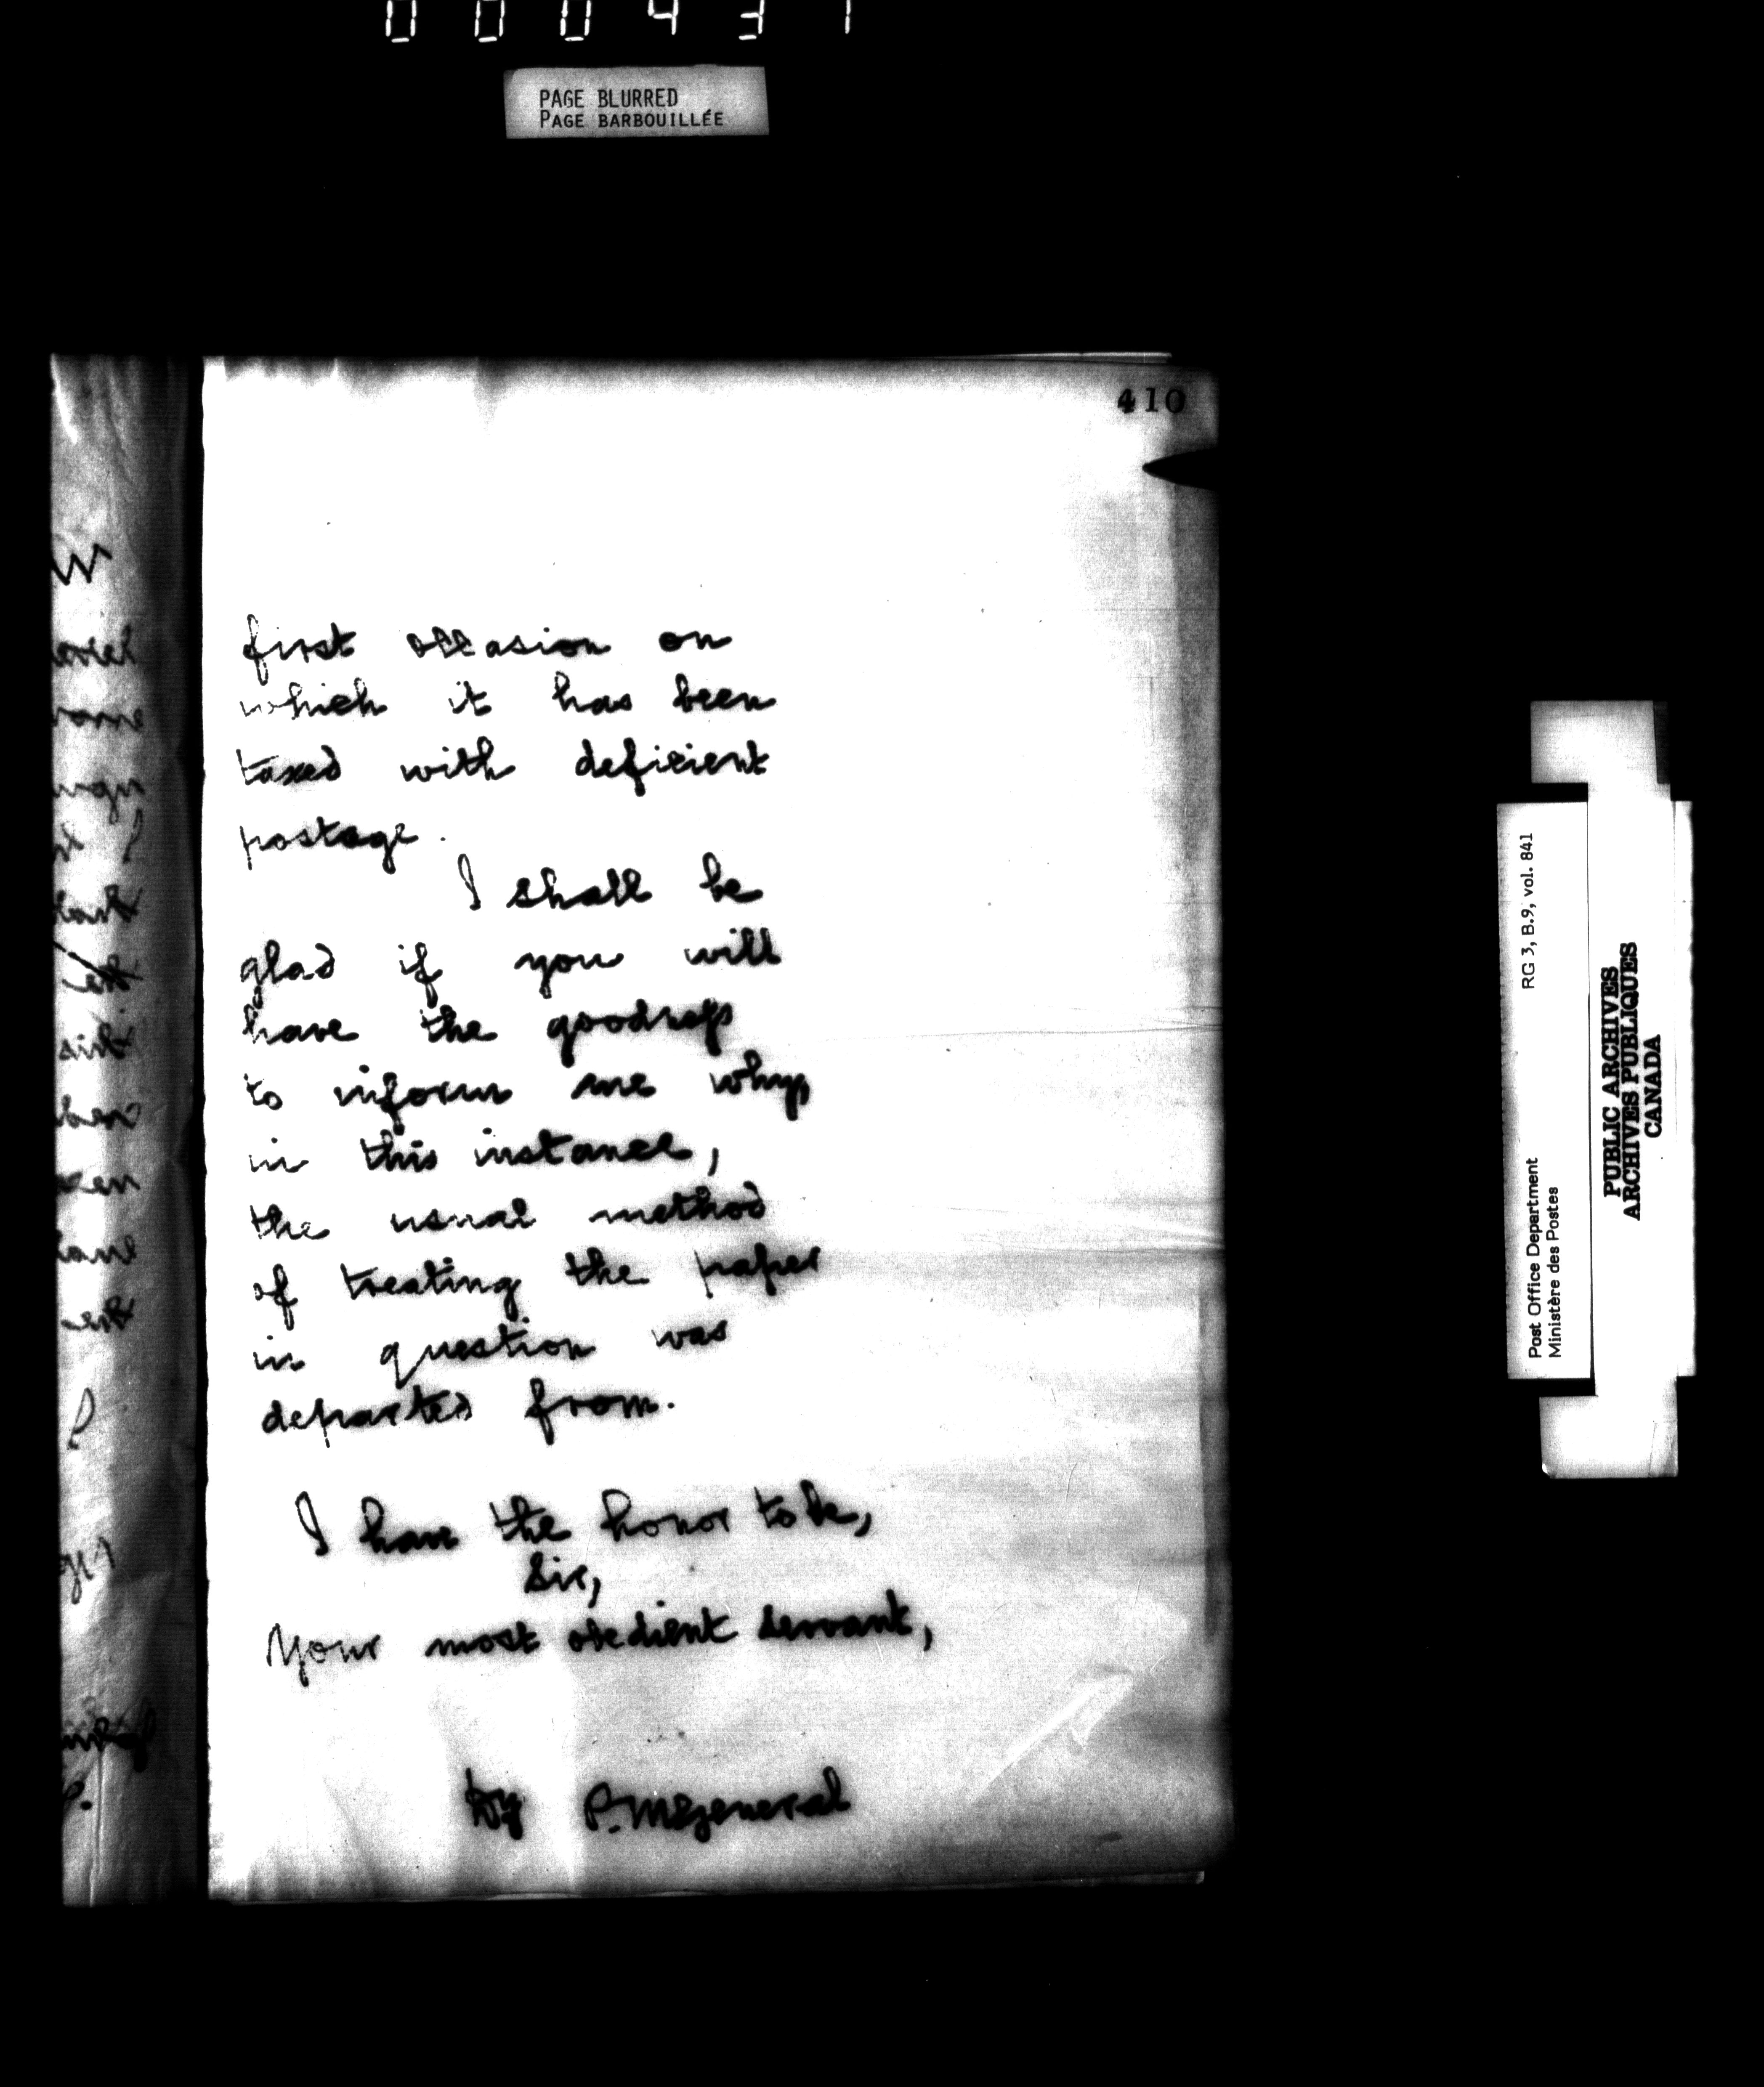 000431
PAGE BLURRED
PAGE BARBOUILLÉE
410
first occasion on
which it has been
taxed with deficient
postage.
I shall be
glad if you will
have the goodness
to inform me why,
in this instance,
the usual method
of treating the paper
in question was
departed from.
I have the honor to be,
Sir,
Your most obedient servant,
Dy P. M. General
Post Office Department RG 3, B.9, vol. 841
Ministère des Postes
PUBLIC ARCHIVES
ARCHIVES PUBLIQUES
CANADA